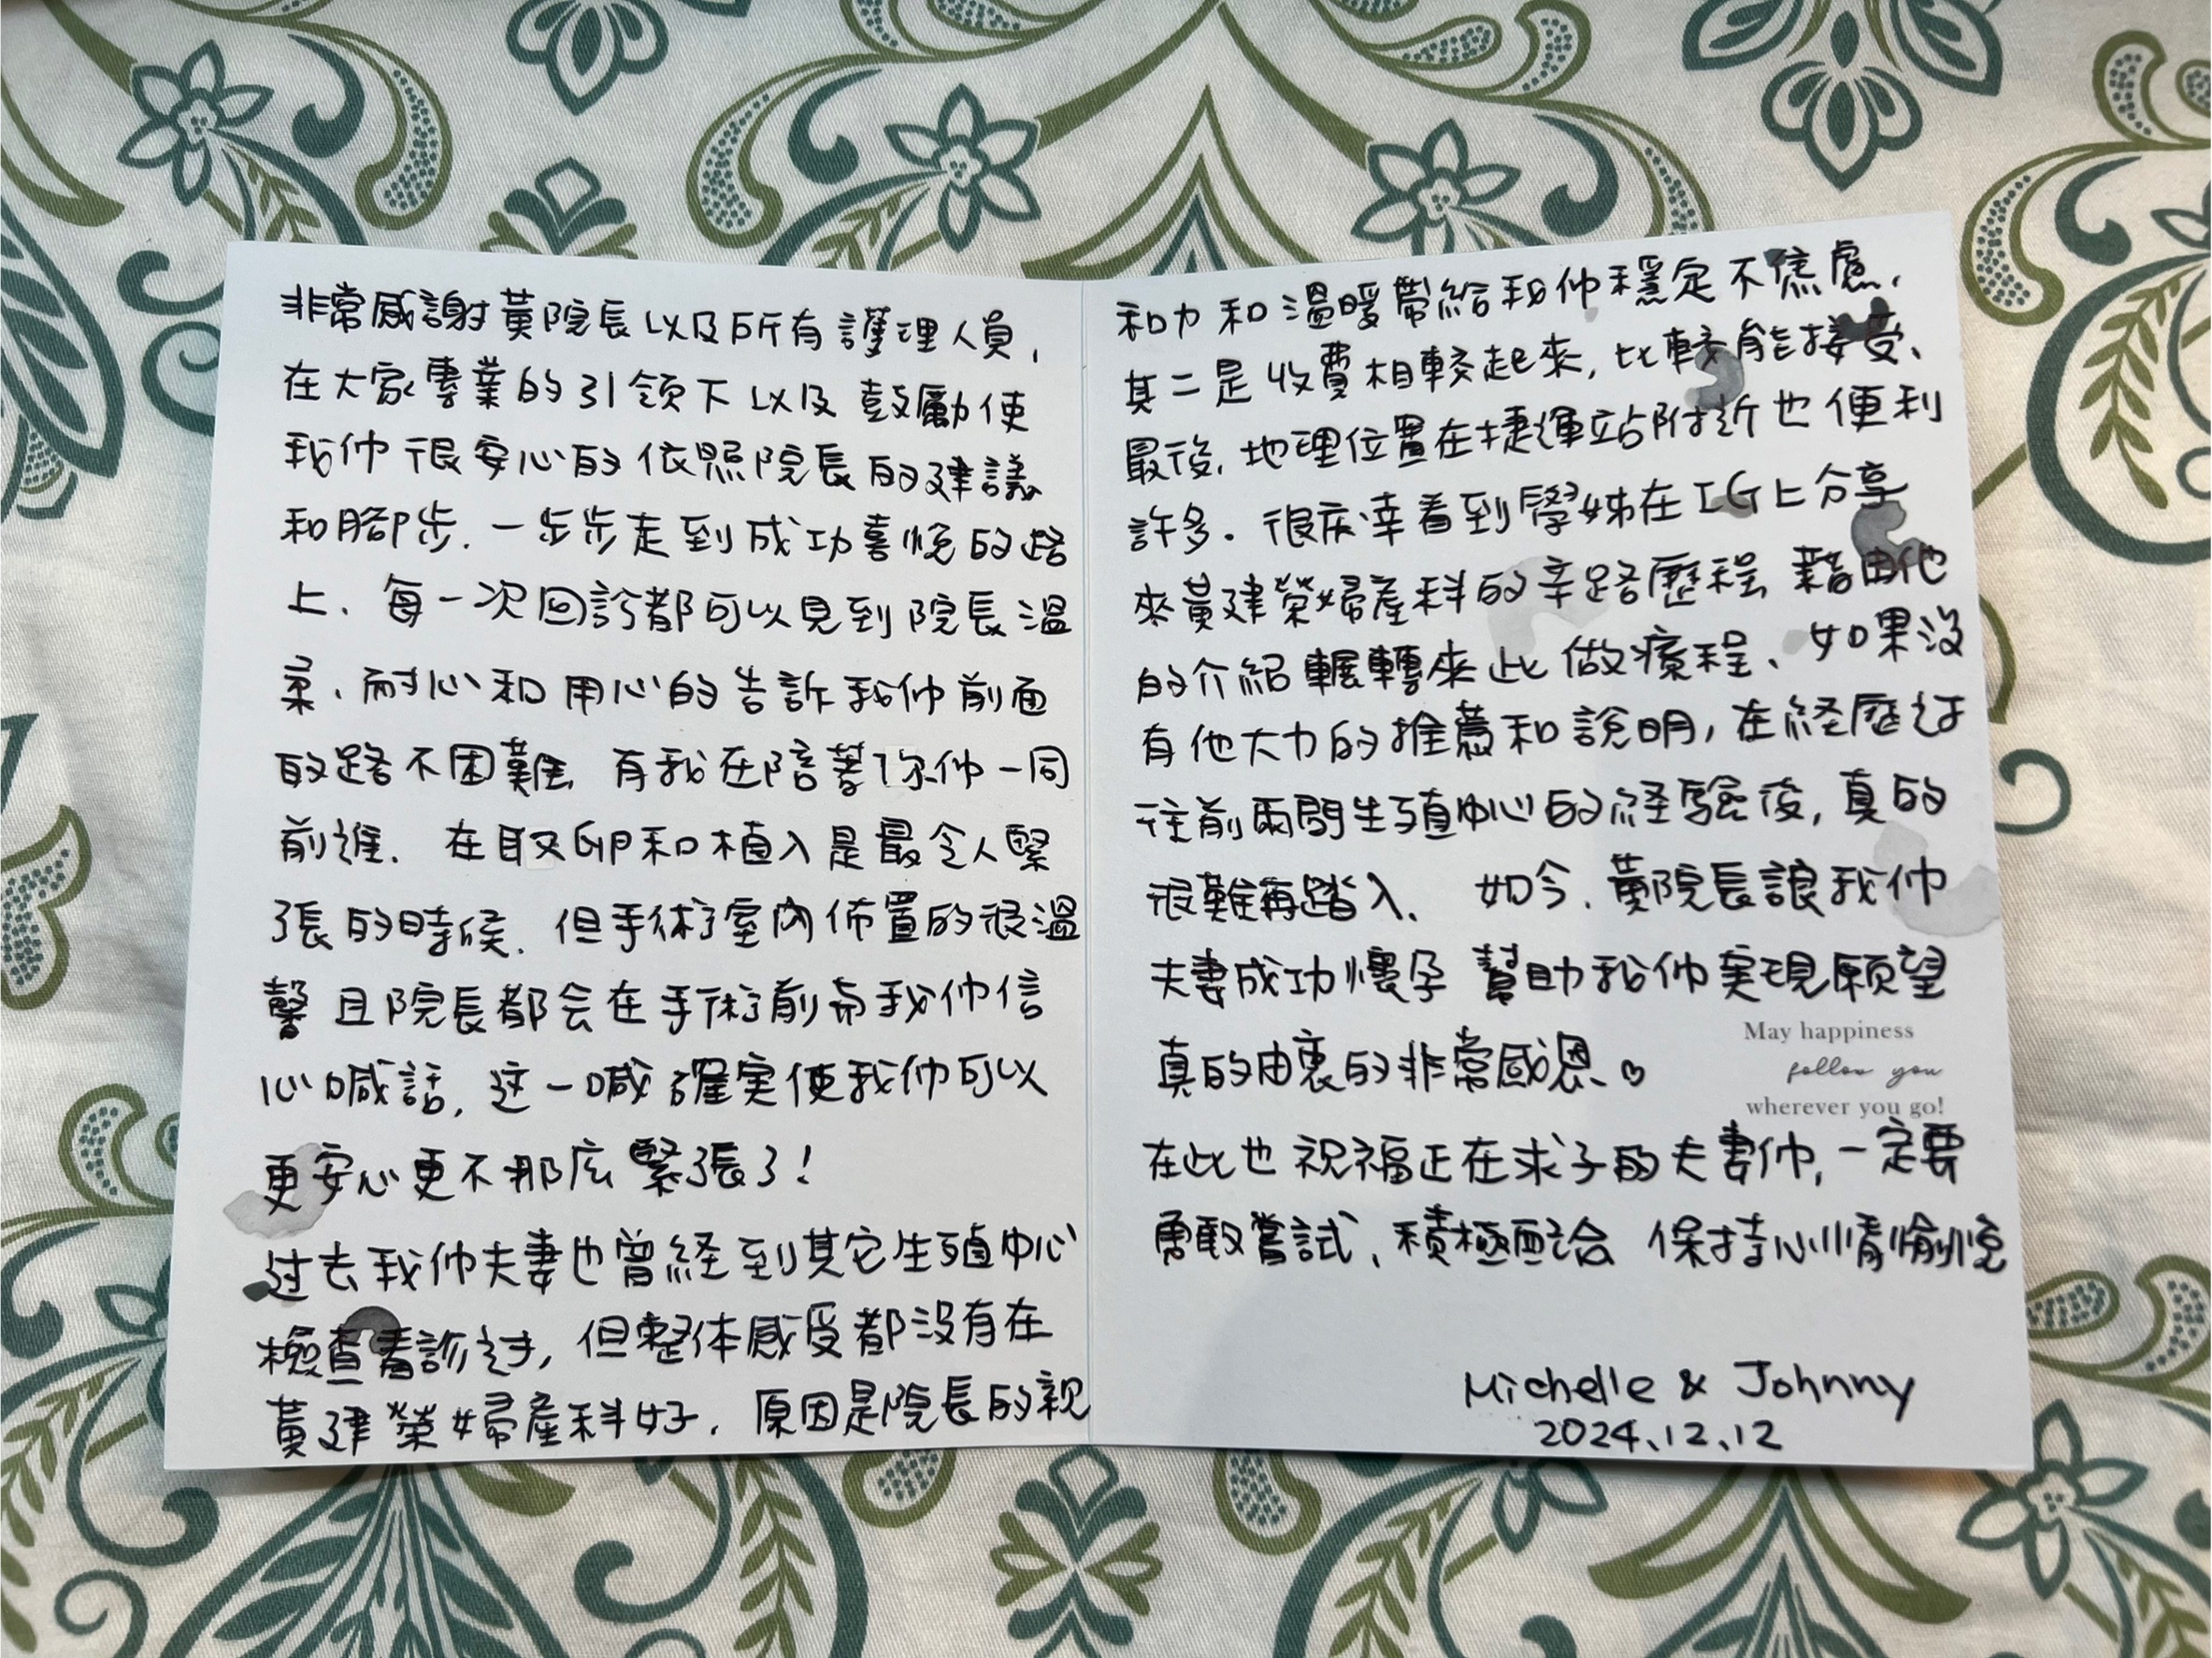 非常感謝黃院長以及所有護理人員,
在大家專業的引領下以及鼓勵使
我们很安心的依照院長的建議
和腳步,一步步走到成功喜悅的路
上、每一次回診都可以見到院長溫
柔、耐心和用心的告訴我们前面
的路不困難,有我在陪著你们一同
前進. 在取卵和植入是最令人緊
張的時候,但手術室內佈置的很溫
馨且院長都会在手術前向我们信
心喊話,这一喊確实使我们可以
更安心更不那庅緊張了!
过去我们夫妻也曾経到其它生殖中心
檢查看診过,但整体感受都沒有在
黃建榮婦產科好,原因是院長的親
和力和溫暖帶給我们穩定不焦慮,
其二是收費相較起來,比較能接受、
最後,地理位置在捷運站附近也便利
許多. 很庆幸看到學姊在IG上分享
來黃建榮婦產科的辛路歷程,藉由他
的介紹輾轉來此做療程、如果沒
有他大力的推薦和說明,在経歷过
往前兩間生殖中心的経驗後,真的
很難再踏入. 如今,黃院長讓我们
夫妻成功懷孕 幫助我们实現願望
真的由衷的非常感恩.♡
May happiness
follow you
wherever you go!
在此也祝福正在求子的夫妻们,一定要
勇敢嘗試、積極配合 保持心情愉悅
Michelle & Johnny
2024.12.12